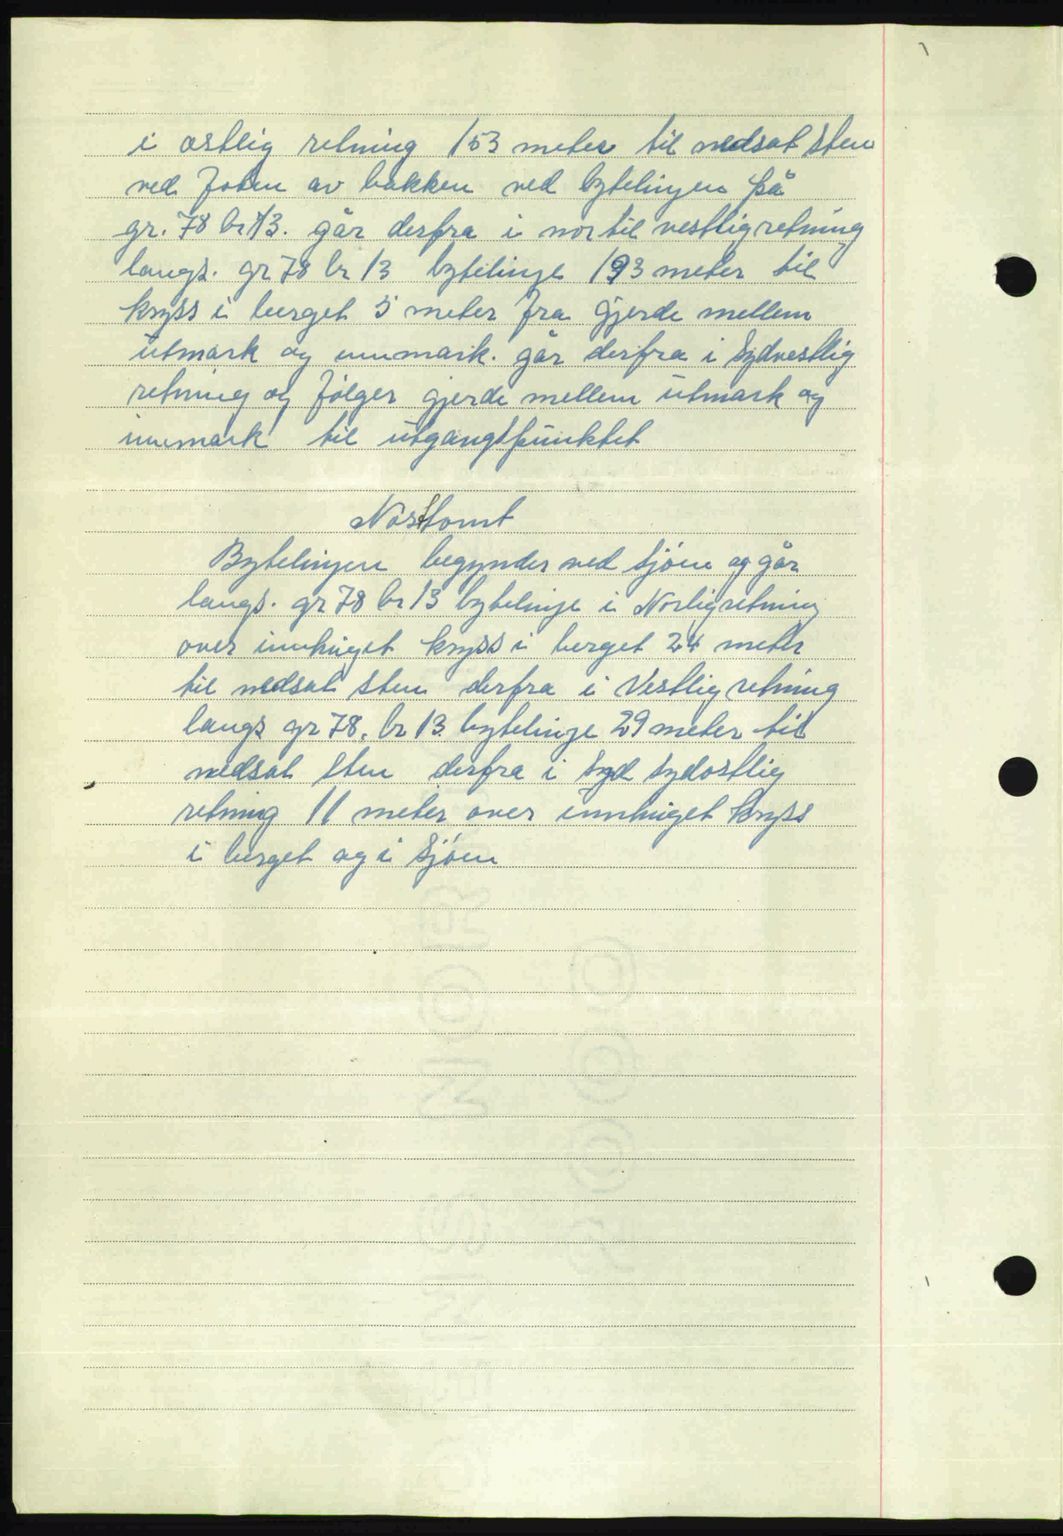 i østlig retning 153 meter til nedsat sten
ved foten av bakken ved bytelingen på
gr. 78 br 13. går derfra i nortil vestligretning
langs. gr 78 br 13 bytelinge 193 meter til
kryss i berget 5 meter fra gjerde mellem
utmark og innmark. går derfra i Sydvestlig
retning og følger gjerde mellem utmark og
innmark til utgangspunktet
Nøsttomt
Bytelingen begynder ved sjøen og går
langs. gr 78 br 13 bytelinje i Norligretning
over innhuget kryss i berget 24 meter
til nedsat sten derfra i Vestlig retning
langs gr 78, br 13 bytelinge 29 meter til
nedsat sten derfra i syd sydostlig
retning 11 meter over innhuget kryss
i berget og i sjøen